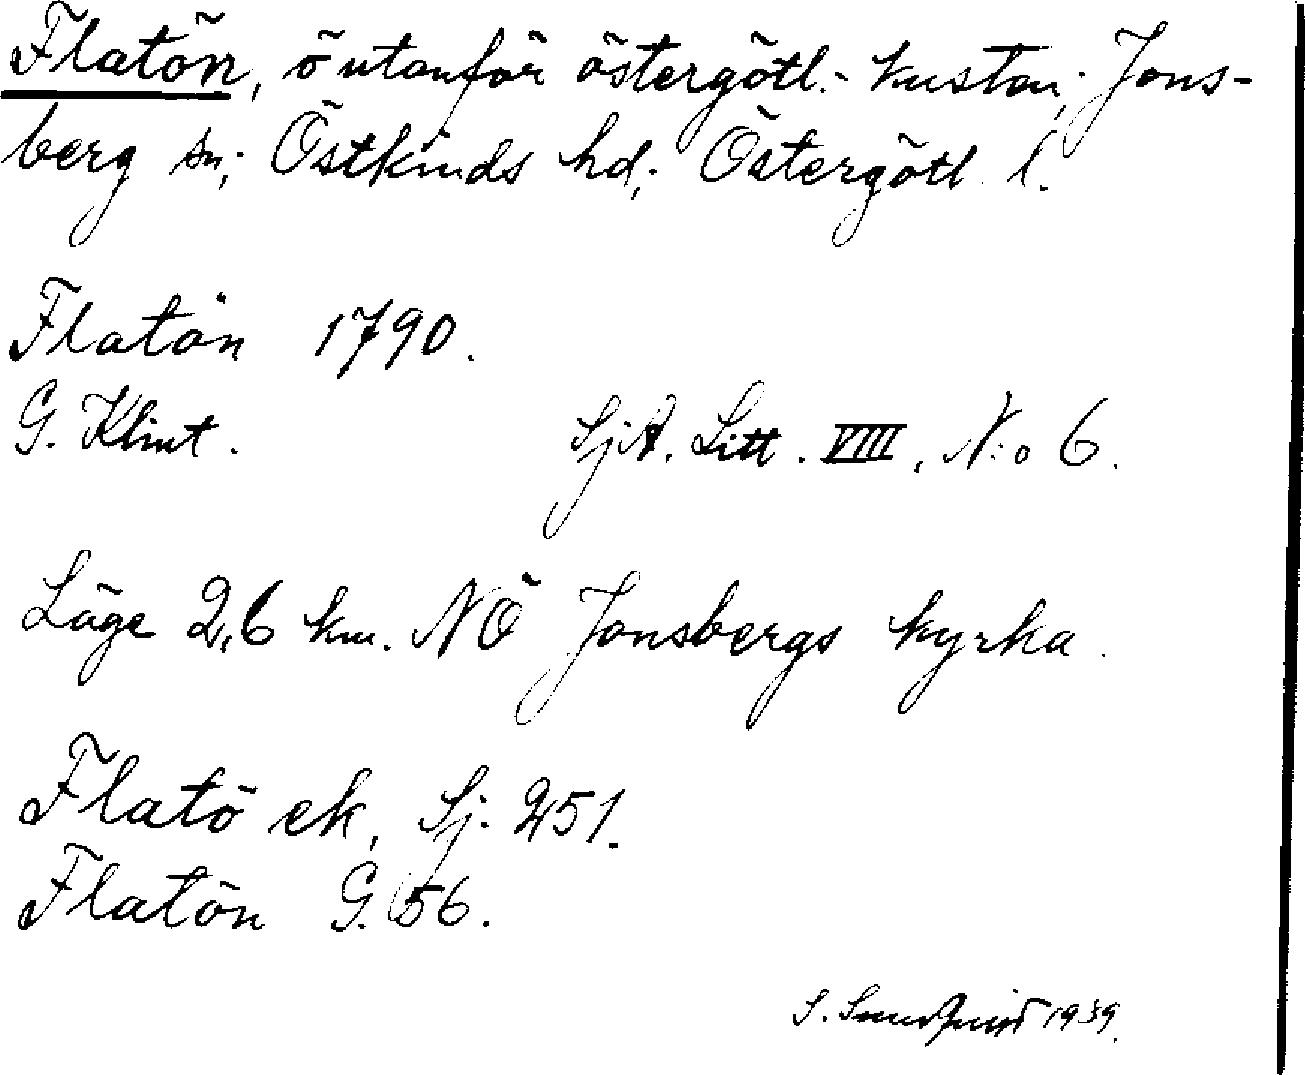 Flatön, ö utanför östergötl.-kusten; Jons-
berg sn; Östkinds hd; Östergötl. l.
Flatön 1790.
G. Klint. SjA. Litt. VIII, N:o 6.
Läge 2,6 km. NÖ Jonsbergs kyrka.
Flatö ek, Sj. 251.
Flatön G. 56.
S. Sundquist 1939.